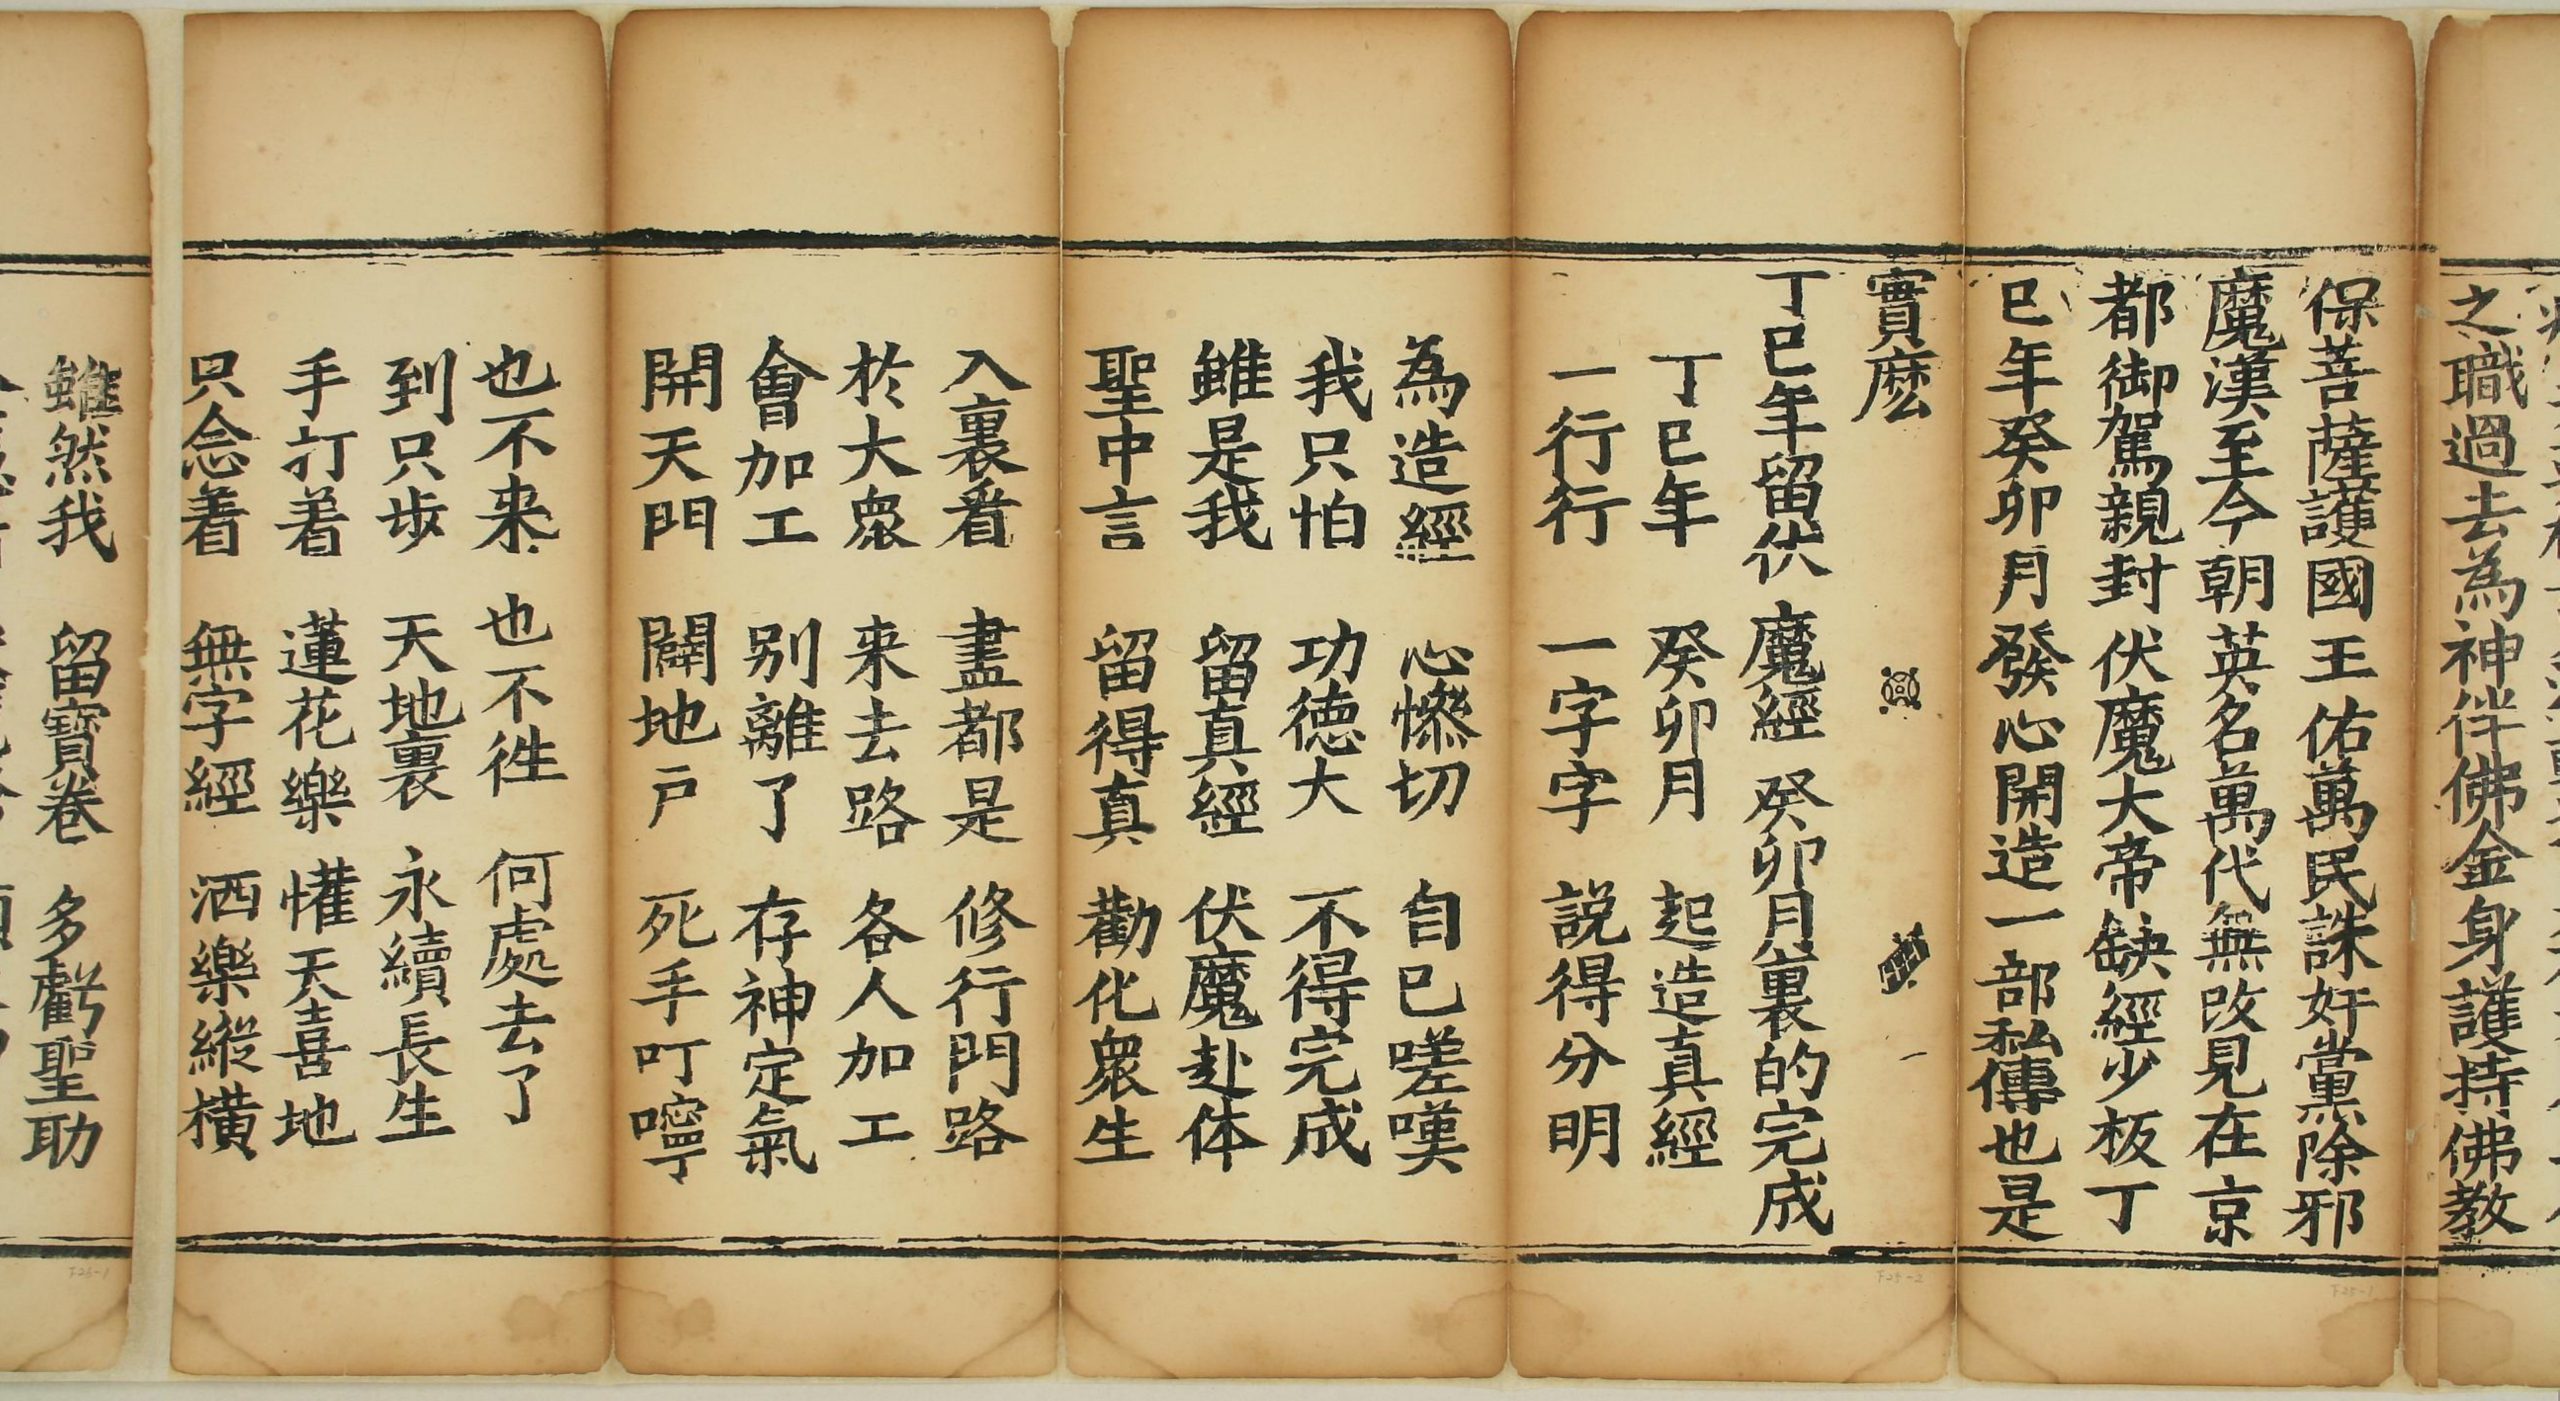 之職過去為神伴佛金身護持佛教
保菩薩護國王佑萬民誅奸黨除邪
魔漢至今朝英名萬代無改見在京
都御駕親封伏魔大帝缺經少板丁
巳年癸卯月發心開造一部私傳也是
實麽
丁巳年留伏魔經癸卯月裏的完成
丁巳年 癸卯月 起造真經
一行行 一字字 説得分明
為造經 心慘切 自巳嗟嘆
我只怕 功德大 不得完成
雖是我 留真經 伏魔赴体
聖中言 留得真 勸化衆生
入裏看 盡都是 修行門路
於大衆 来去路 各人加工
會加工 别離了 存神定氣
開天門 闢地户 死手叮嚀
也不来 也不徃 何處去了
到只步 天地裏 永續長生
手打着 蓮花樂 懽天喜地
只念着 無字經 洒樂縱横
雖然我 留寶卷 多虧聖助